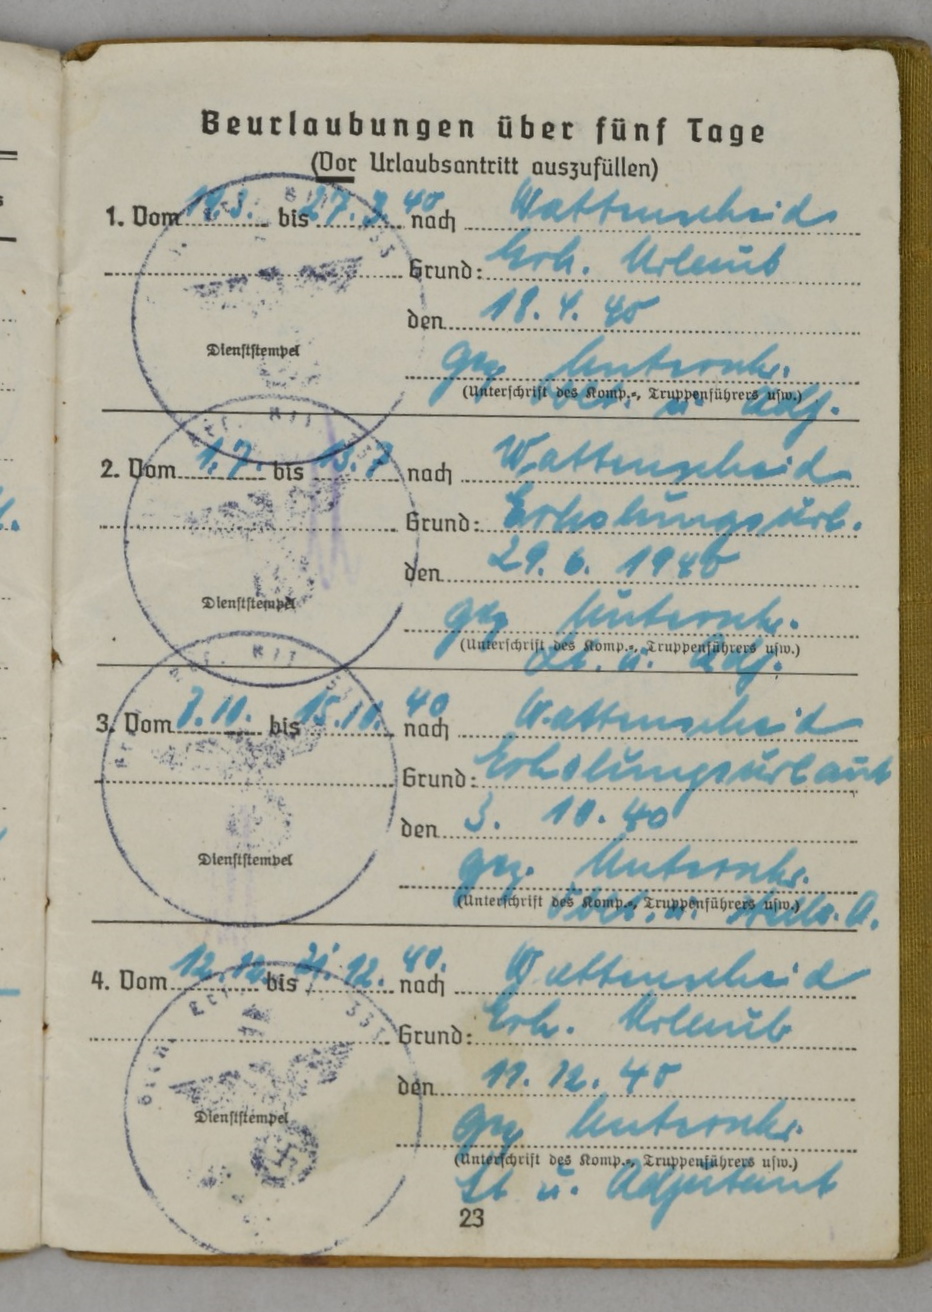 Beurlaubungen über fünf Tage
(Vor Urlaubsantritt auszufüllen)
1. Vom bis nach Wattenscheid
Grund: Erh. Urlaub
den 18. 4. 40
gez. Unterschr.
(Unterschrift des Komp.-, Truppenführers usw.)
Oblt. u. Adj.
Dienststempel
2. Vom 1.7. bis 13.7 nach Wattenscheid
Grund: Erholungsurl.
den 29. 6. 1940
gez. Unterschr.
(Unterschrift des Komp.-, Truppenführers usw.)
Lt. u. Adj.
Dienststempel
3. Vom 7.10. bis 15.10. 40 nach Wattenscheid
Grund: Erholungsurlaub
den 3. 10. 40
gez. Unterschr.
(Unterschrift des Komp.-, Truppenführers usw.)
Oblt. u.
Dienststempel
4. Vom 12.12. bis 21.12. 40. nach Wattenscheid
Grund: Erh. Urlaub
den 11. 12. 40
gez. Unterschr.
(Unterschrift des Komp.-, Truppenführers usw.)
Lt u. Adjutant
Dienststempel
23